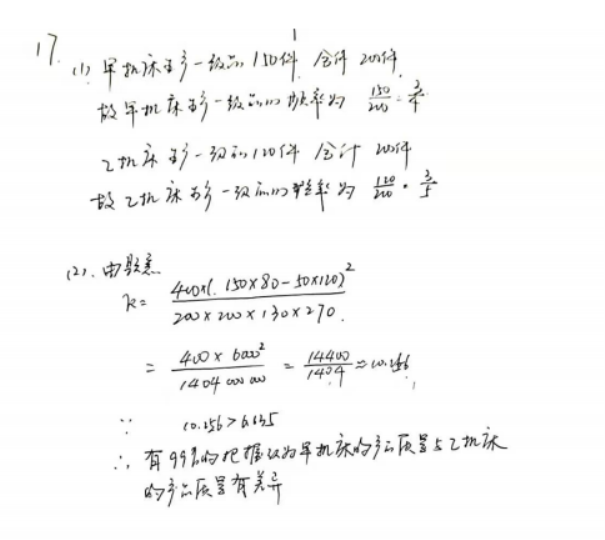 17.
(1) 甲机床生产一级品150件 合计200件
故甲机床生产一级品的频率为 150/200 = 3/4
乙机床生产一级品120件 合计 200件
故乙机床生产一级品的频率为 120/200 = 3/5
(2). 由题意
k = 400×(150×80-50×120)² / 200×200×130×270.
= 400×6000² / 1404 000 000 = 14400/1404 ≈ 10.256
∵ 10.256>6.635
∴ 有99%的把握认为甲机床的产品质量与乙机床
的产品质量有差异